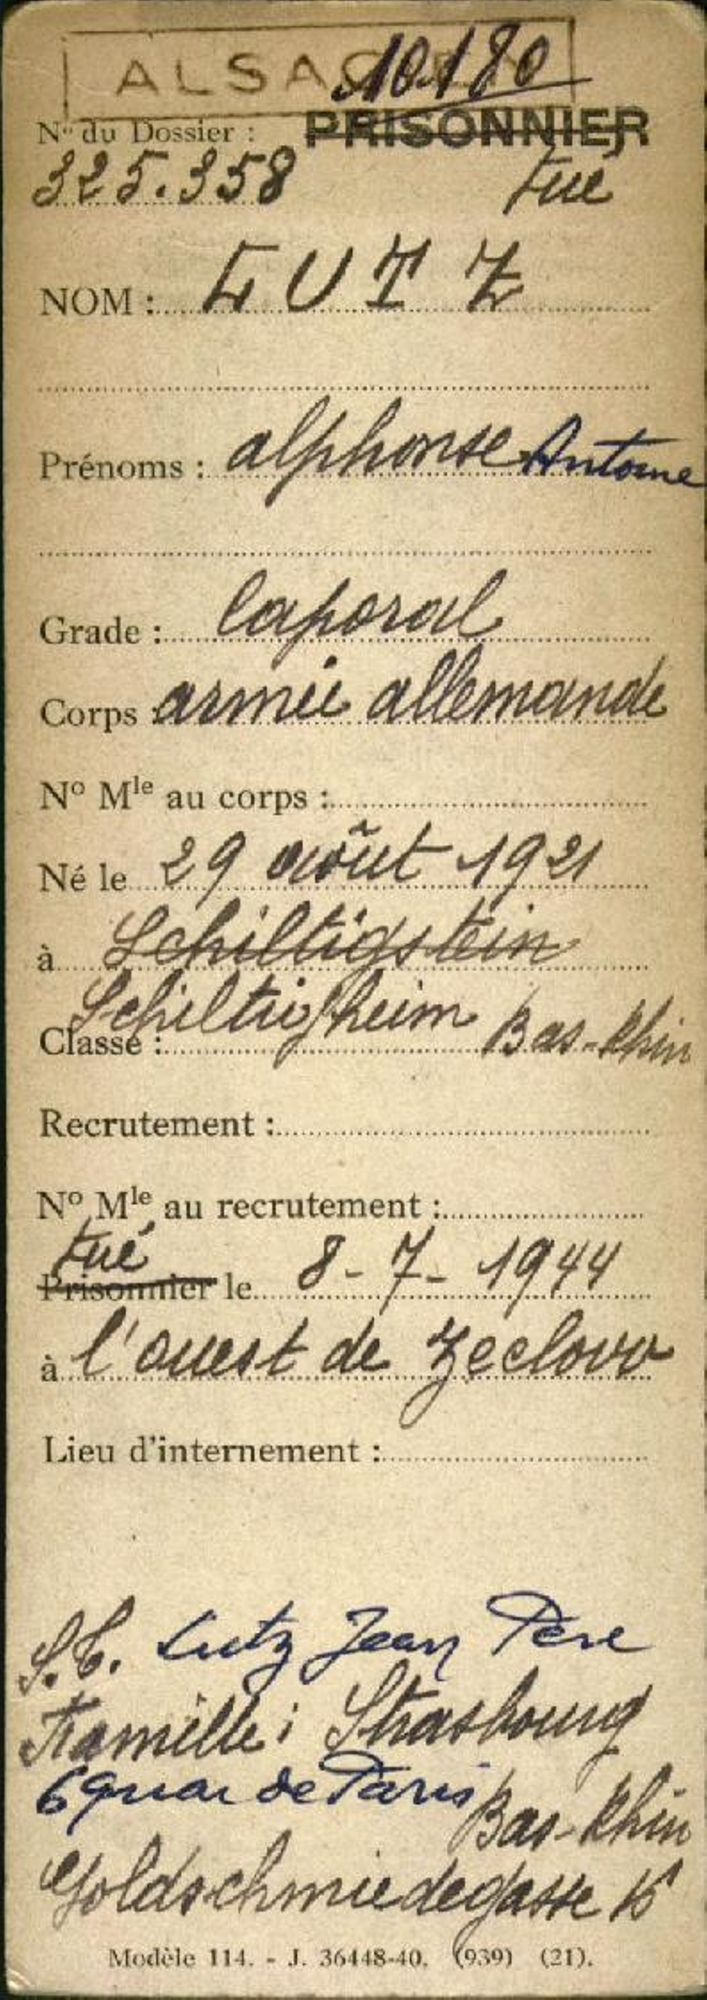 ALSACIEN 10.180
N° du Dossier : PRISONNIER
325.358 tué
NOM : LUTZ
Prénoms : alphonse Antoine
Grade : Caporal
Corps armée allemande
N° Mle au corps :
Né le 29 août 1921
à Schiltigstein
Schiltigheim Bas-Rhin
Classe :
Recrutement :
N° Mle au recrutement :
tué
Prisonnier le 8-7-1944
à l'ouest de Zeclovo
Lieu d'internement :
S.C. Lutz Jean Père
Famille : Strasbourg
6 quai de Paris Bas-Rhin
Goldschmiedegasse 15
Modèle 114. - J. 36448-40. (939) (21).